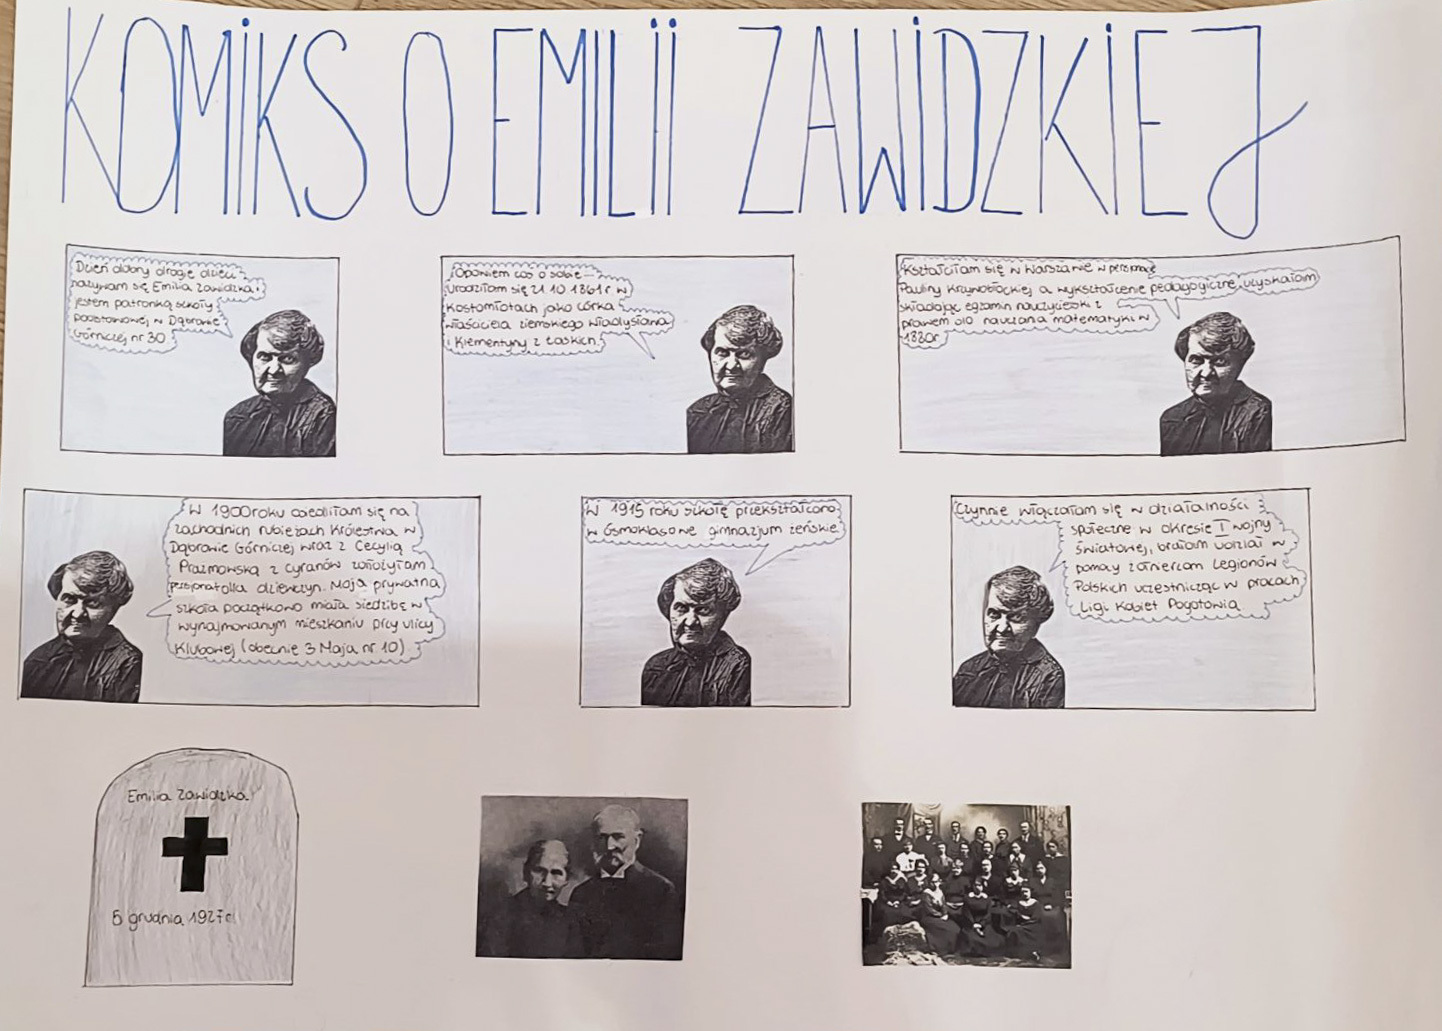 KOMIKS O EMILII ZAWIDZKIEJ
Dzień dobry drogie dzieci
nazywam się Emilia Zawidzka.
jestem patronką szkoły
podstawowej w Dąbrowie
Górniczej nr 30
Opowiem coś o sobie
urodziłam się 21 10 1861 r. w
Kostomłotach jako córka
właściciela ziemskiego Władysława
i Klementyny z Łaskich.
Kształciłam się w Warszawie w pensjonacie
Pauliny Krzywobłockiej a wykształcenie pedagogiczne uzyskałam
składając egzamin nauczycielski z
prawem do nauczania matematyki w
1880r
W 1900roku osiedliłam się na
zachodnich rubieżach Królestwa w
Dąbrowie Górniczej wraz z Cecylią
Prażmowską z Cyranów założyłam
pensjonat dla dziewczyn. Moja prywatna
szkoła początkowo miała siedzibę w
wynajmowanym mieszkaniu przy ulicy
Klubowej (obecnie 3 Maja nr 10)
W 1915 roku szkołę przekształcono
w ósmoklasowe gimnazjum żeńskie
Czynnie włączałam się w działalności
społeczne w okresie I wojny
Światowej, brałam udział w
pomocy żołnierzom Legionów
Polskich uczestnicząc w pracach
Ligi Kobiet Pogotowia
Emilia Zawidzka
5 grudnia 1927r